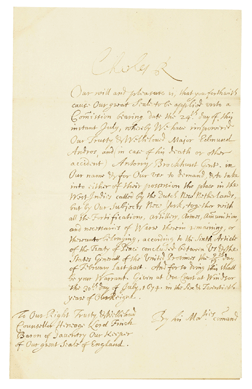 Charles R
Our will and pleasure is, that you forthwith
cause Our great Seale to be applied unto a
Commission bearing date the 29th day of this
instant July, whereby We have impowered
Our Trusty & Welbeloved Major Edmund
Andros and in case of his death or other
accident Anthony Brockholst Gent. in
Our name & for Our use to demand & take
into either of their possession the place in the
West Indies called by the Dutch New Netherlands,
but by Our Subjects New York, together with
all the Fortifications, Artillery, Armes, Ammunition
and necessaries of Warr therein remaining, or
thereunto belonging, according to the Sixth Article
of the Treaty of Peace concluded between Us & the
States Generall of the United Provinces the
of February last past. And for so doing this shall
be your Warrant. Given at Our Court at Windsor
the day of July, 1674. in the Year
of Our Reigne.
To Our Right Trusty & Welbeloved
Councellor Heneage Lord Finch
Baron of Daventry Our Keeper
of Our great Seale of England.
By his Maties Command